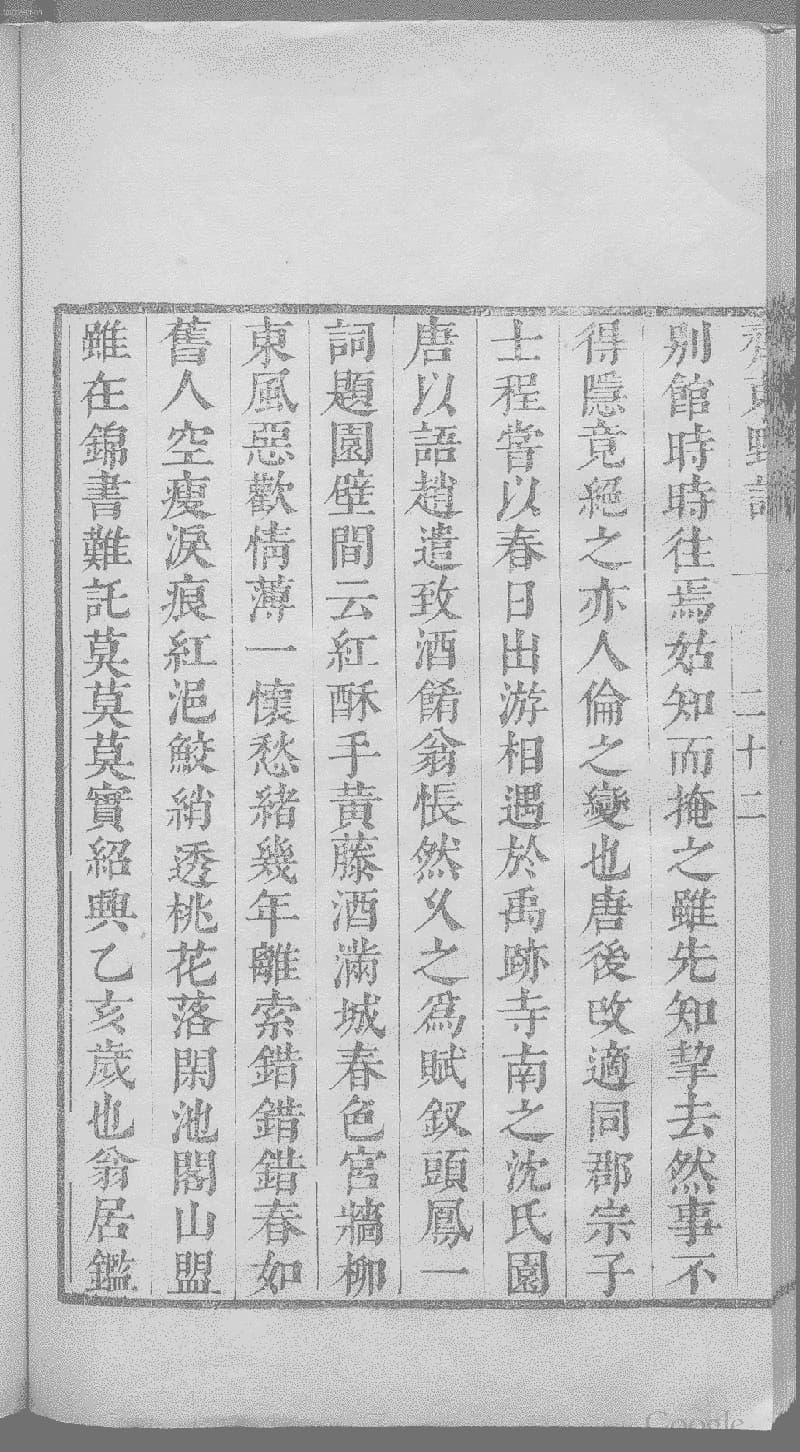 齊東野語 一 二十二
別館時時往焉姑知而掩之雖先知挈去然事不
得隱竟絕之亦人倫之變也唐後改適同郡宗子
士程嘗以春日出游相遇於禹跡寺南之沈氏園
唐以語趙遣致酒餚翁悵然久之為賦釵頭鳳一
詞題園壁間云紅酥手黃藤酒滿城春色宮牆柳
東風惡歡情薄一懷愁緒幾年離索錯錯錯春如
舊人空瘦淚痕紅浥鮫綃透桃花落閑池閣山盟
雖在錦書難託莫莫莫實紹興乙亥歲也翁居鑑
Google